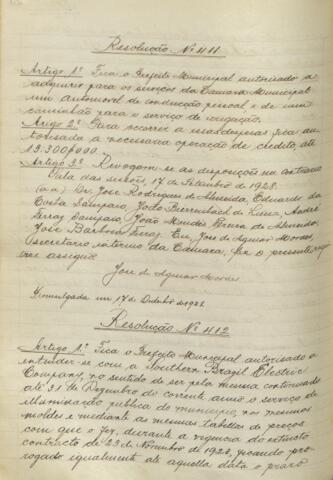 Resolução Nº 411
Artigo 1º Fica o Prefeito Municipal autorisado a
adquirir para os serviços da Camara Municipal
um automovel de conducção pessoal e de um
caminhão para o serviço de irrigação.
Artigo 2º Para occorrer a essas despesas fica au-
torisada a necessaria operação de credito, até
13.300$000.
Artigo 3º Revogam-se as disposições em contrario
Sala das sessões, 17 de Setembro de 1928.
(a.a.) Dr. José Rodrigues de Almeida, Eduardo da
Costa Sampaio, João Bierrenbach de Lima, André
Ferraz Sampaio, João Mendes Pereira de Almeida,
José Barbosa Ferraz. Eu, José de Aguiar Moraes
Secretario interno da Camara, fiz o presente
e assigno.
José de Aguiar Moraes
Promulgada em 17 de de 1928
Resolução Nº 412
Artigo 1º Fica o Prefeito Municipal autorisado a
entender-se com a Southern Brazil Electric
Company, no sentido de ser pela mesma continuado
até 31 de Dezembro do corrente anno o serviço de
illuminação publica do municipio, nos mesmos
moldes e mediante as mesmas tabellas de preços
com que o fez, durante a vigencia do extincto
contracto de 23 de Novembro de 1923, ficando pro-
rogado egualmente até aquella data o praso